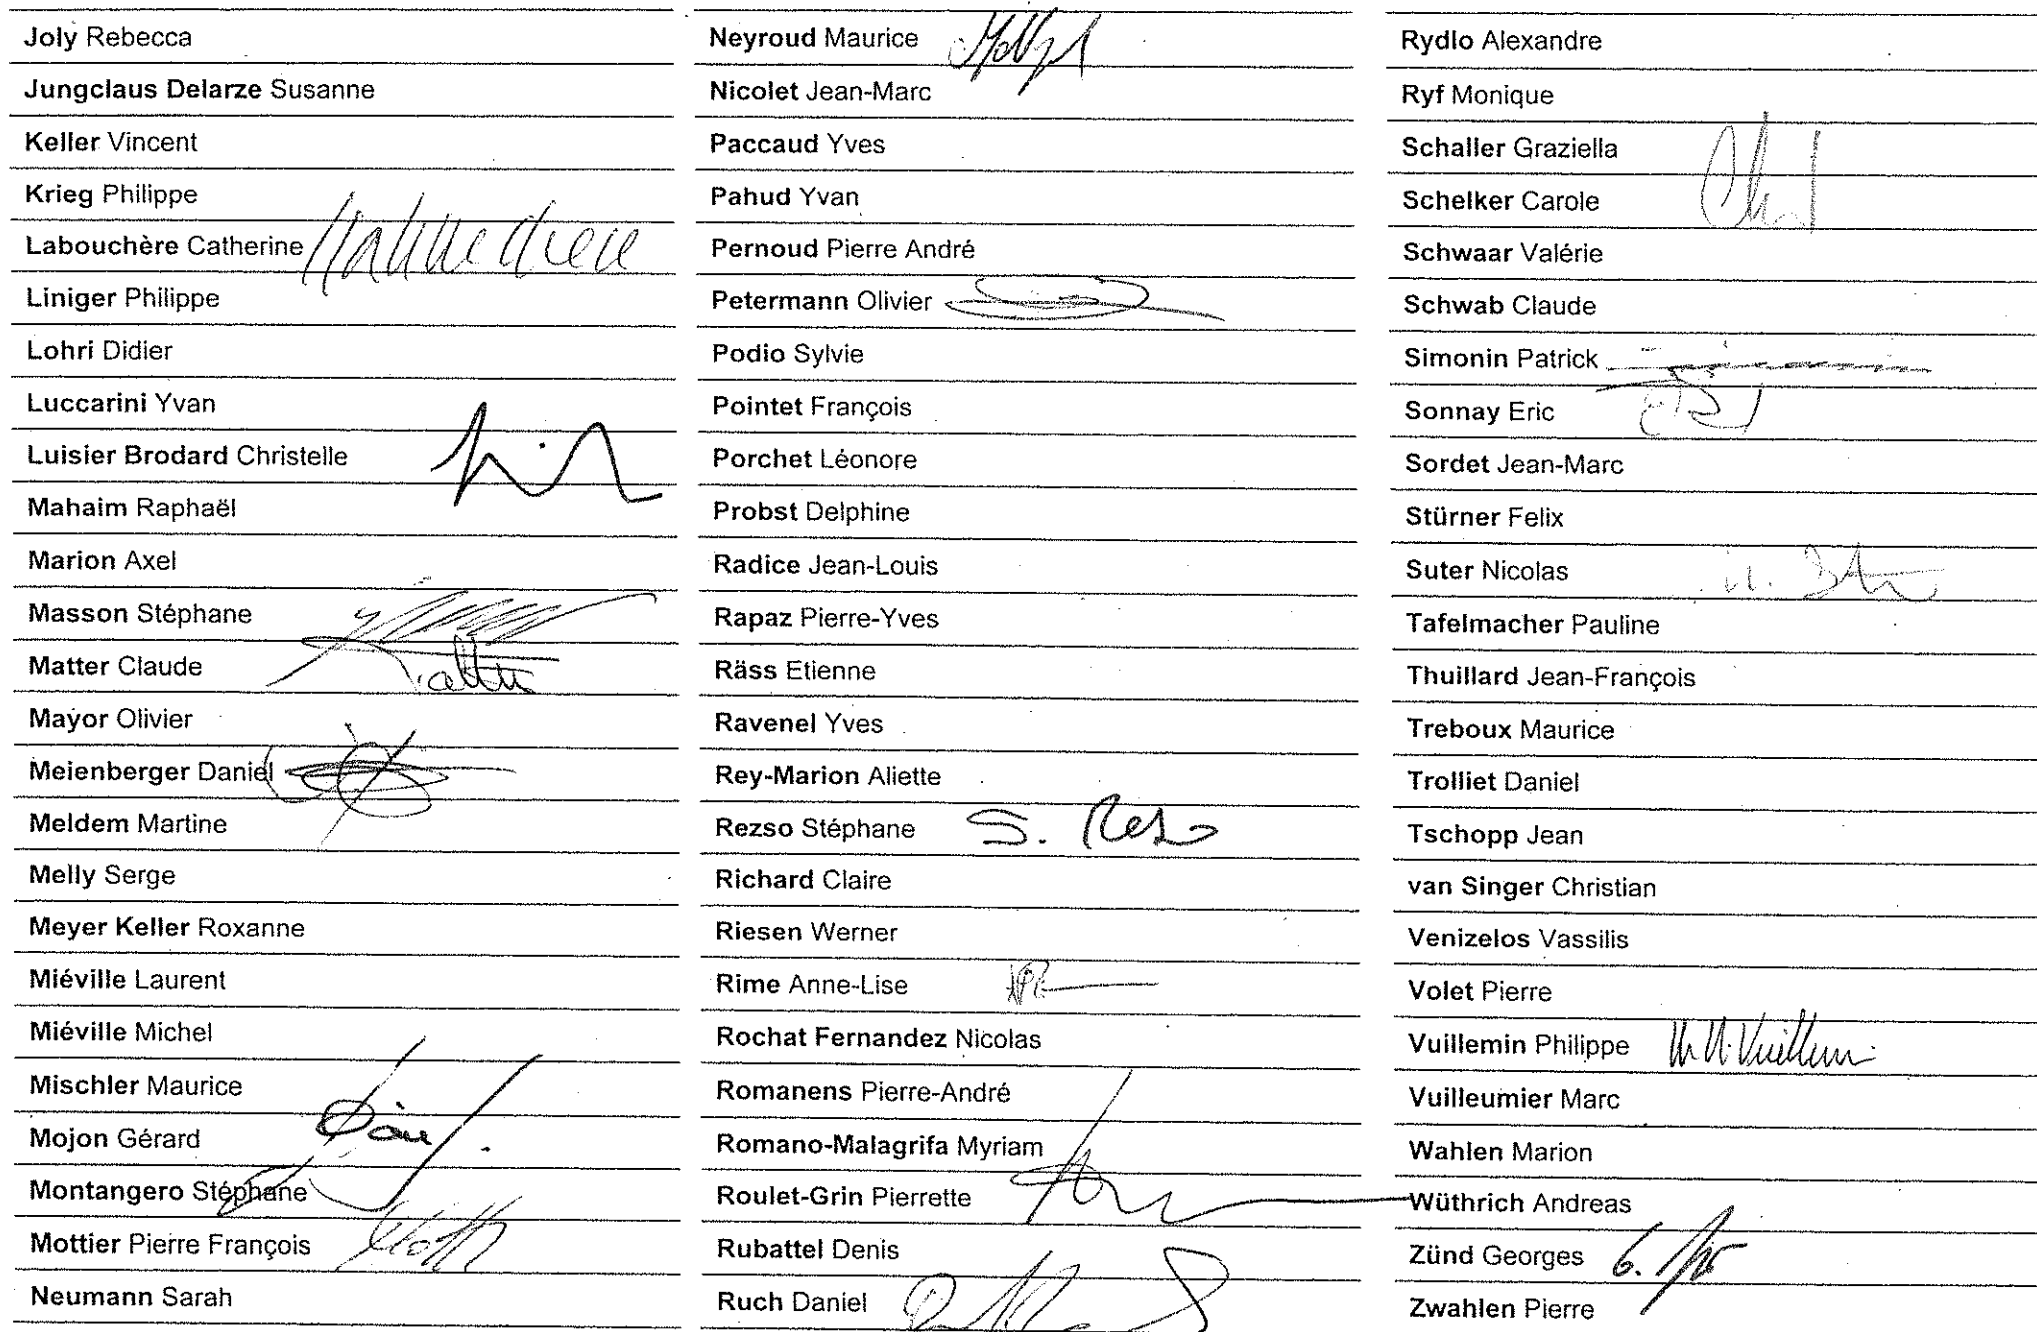 Joly Rebecca
Jungclaus Delarze Susanne
Keller Vincent
Krieg Philippe
Labouchère Catherine
Liniger Philippe
Lohri Didier
Luccarini Yvan
Luisier Brodard Christelle
Mahaim Raphaël
Marion Axel
Masson Stéphane
Matter Claude
Mayor Olivier
Meienberger Daniel
Meldem Martine
Melly Serge
Meyer Keller Roxanne
Miéville Laurent
Miéville Michel
Mischler Maurice
Mojon Gérard
Montangero Stéphane
Mottier Pierre François
Neumann Sarah
Neyroud Maurice
Nicolet Jean-Marc
Paccaud Yves
Pahud Yvan
Pernoud Pierre André
Petermann Olivier
Podio Sylvie
Pointet François
Porchet Léonore
Probst Delphine
Radice Jean-Louis
Rapaz Pierre-Yves
Räss Etienne
Ravenel Yves
Rey-Marion Aliette
Rezso Stéphane S. Rezso
Richard Claire
Riesen Werner
Rime Anne-Lise
Rochat Fernandez Nicolas
Romanens Pierre-André
Romano-Malagrifa Myriam
Roulet-Grin Pierrette
Rubattel Denis
Ruch Daniel
Rydlo Alexandre
Ryf Monique
Schaller Graziella
Schelker Carole
Schwaar Valérie
Schwab Claude
Simonin Patrick
Sonnay Eric
Sordet Jean-Marc
Stürner Felix
Suter Nicolas
Tafelmacher Pauline
Thuillard Jean-François
Treboux Maurice
Trolliet Daniel
Tschopp Jean
van Singer Christian
Venizelos Vassilis
Volet Pierre
Vuillemin Philippe Vuillemin
Vuilleumier Marc
Wahlen Marion
Wüthrich Andreas
Zünd Georges
Zwahlen Pierre